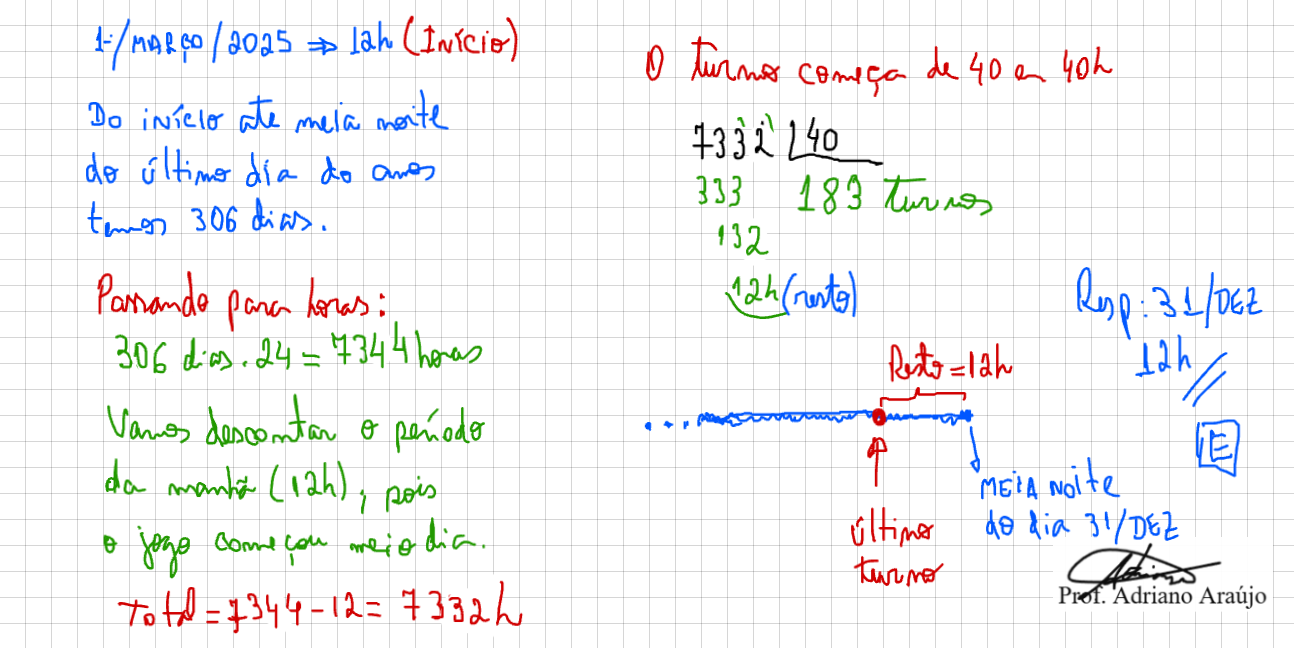 1º/MARÇO/2025 ⇒ 12h (Início)
Do início ate meia noite
do último dia do anos
temos 306 dias.
Passando para horas:
306 dias . 24 = 7344 horas
Vamos descontar o período
da manhã (12h), pois
o jogo começou meio dia.
Total = 7344 - 12 = 7332h
O turno começa de 40 em 40h
7332 40
333 183 turnos
132
12h (resto)
Resto = 12h
...
último
turno
MEIA NOITE
do dia 31/DEZ
Resp: 31/DEZ
12h //
E
Prof. Adriano Araújo